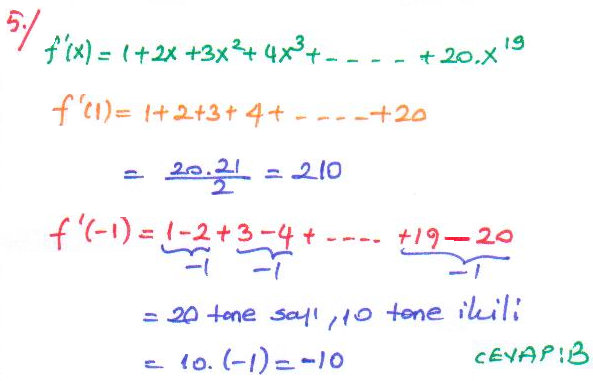 5./
f'(x) = 1+2x+3x²+4x³+ - - - - +20.x¹⁹
f'(1) = 1+2+3+4+ - - - - +20
= 20.21/2 = 210
f'(-1) = 1-2+3-4+ ---- +19-20
-1 -1 -1
= 20 tane sayı, 10 tane ikili
= 10.(-1) = -10 CEVAP:B